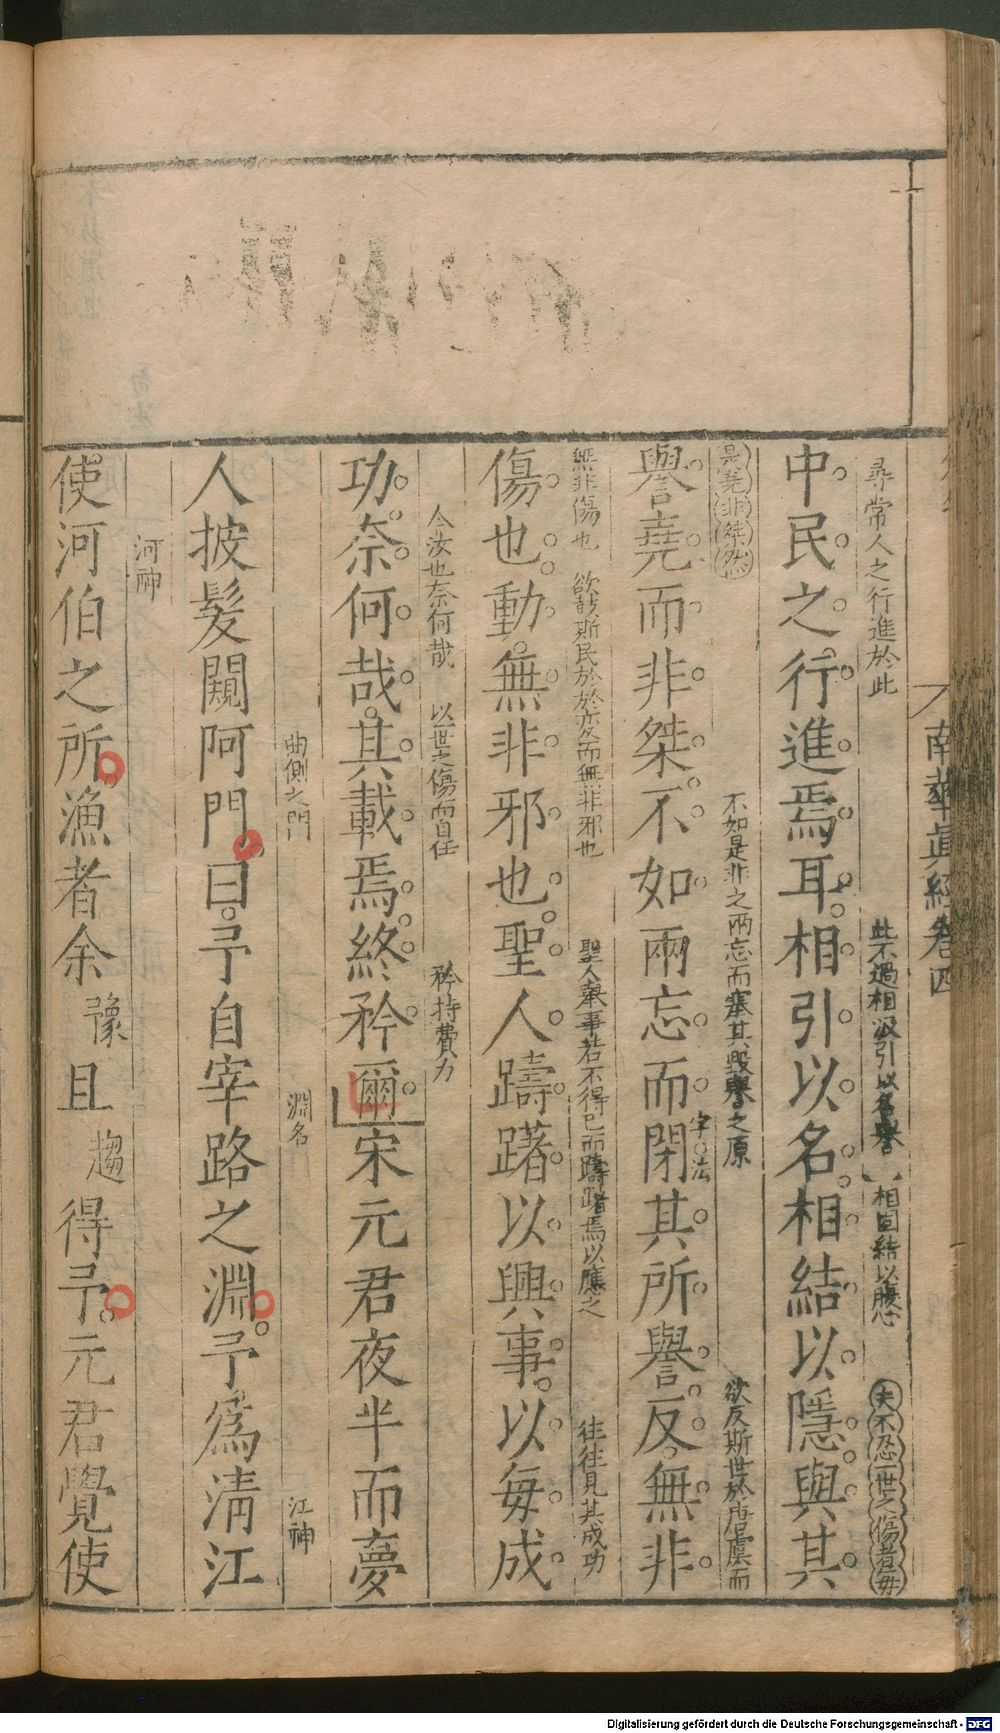 南華真經卷四
尋常人之行進於此 此不過相汲引以名譽 相固結以腹心 夫不忍一世之傷者毋
中民之行進焉耳相引以名相結以隱與其
是堯非桀然 不如是非之兩忘而塞其毀譽之原 欲反斯世於唐虞而
譽堯而非桀不如兩忘而閉其所譽反無非
字法
無非傷也 欲鼓斯民於於変而無非邪也 聖人舉事若不得已而躊躇焉以應之 往往見其成功
傷也動無非邪也聖人躊躇以興事以每成
今汝也奈何哉 以世之傷而自任 矜持費力
功奈何哉其載焉終矜爾宋元君夜半而夢
曲側之門 淵名 江神
人披髮闚阿門曰予自宰路之淵予為清江
河神
使河伯之所漁者余豫且趨得予元君覺使
Digitalisierung gefördert durch die Deutsche Forschungsgemeinschaft - DFG